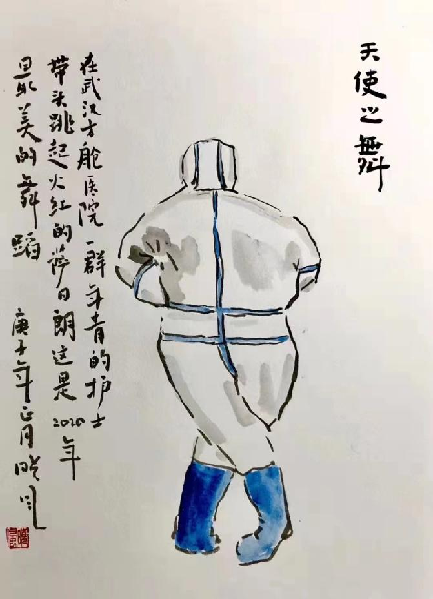 天使之舞
在武汉方舱医院一群年青的护士
带头跳起火红的萨日朗这是2020年
最美的舞蹈 庚子年正月